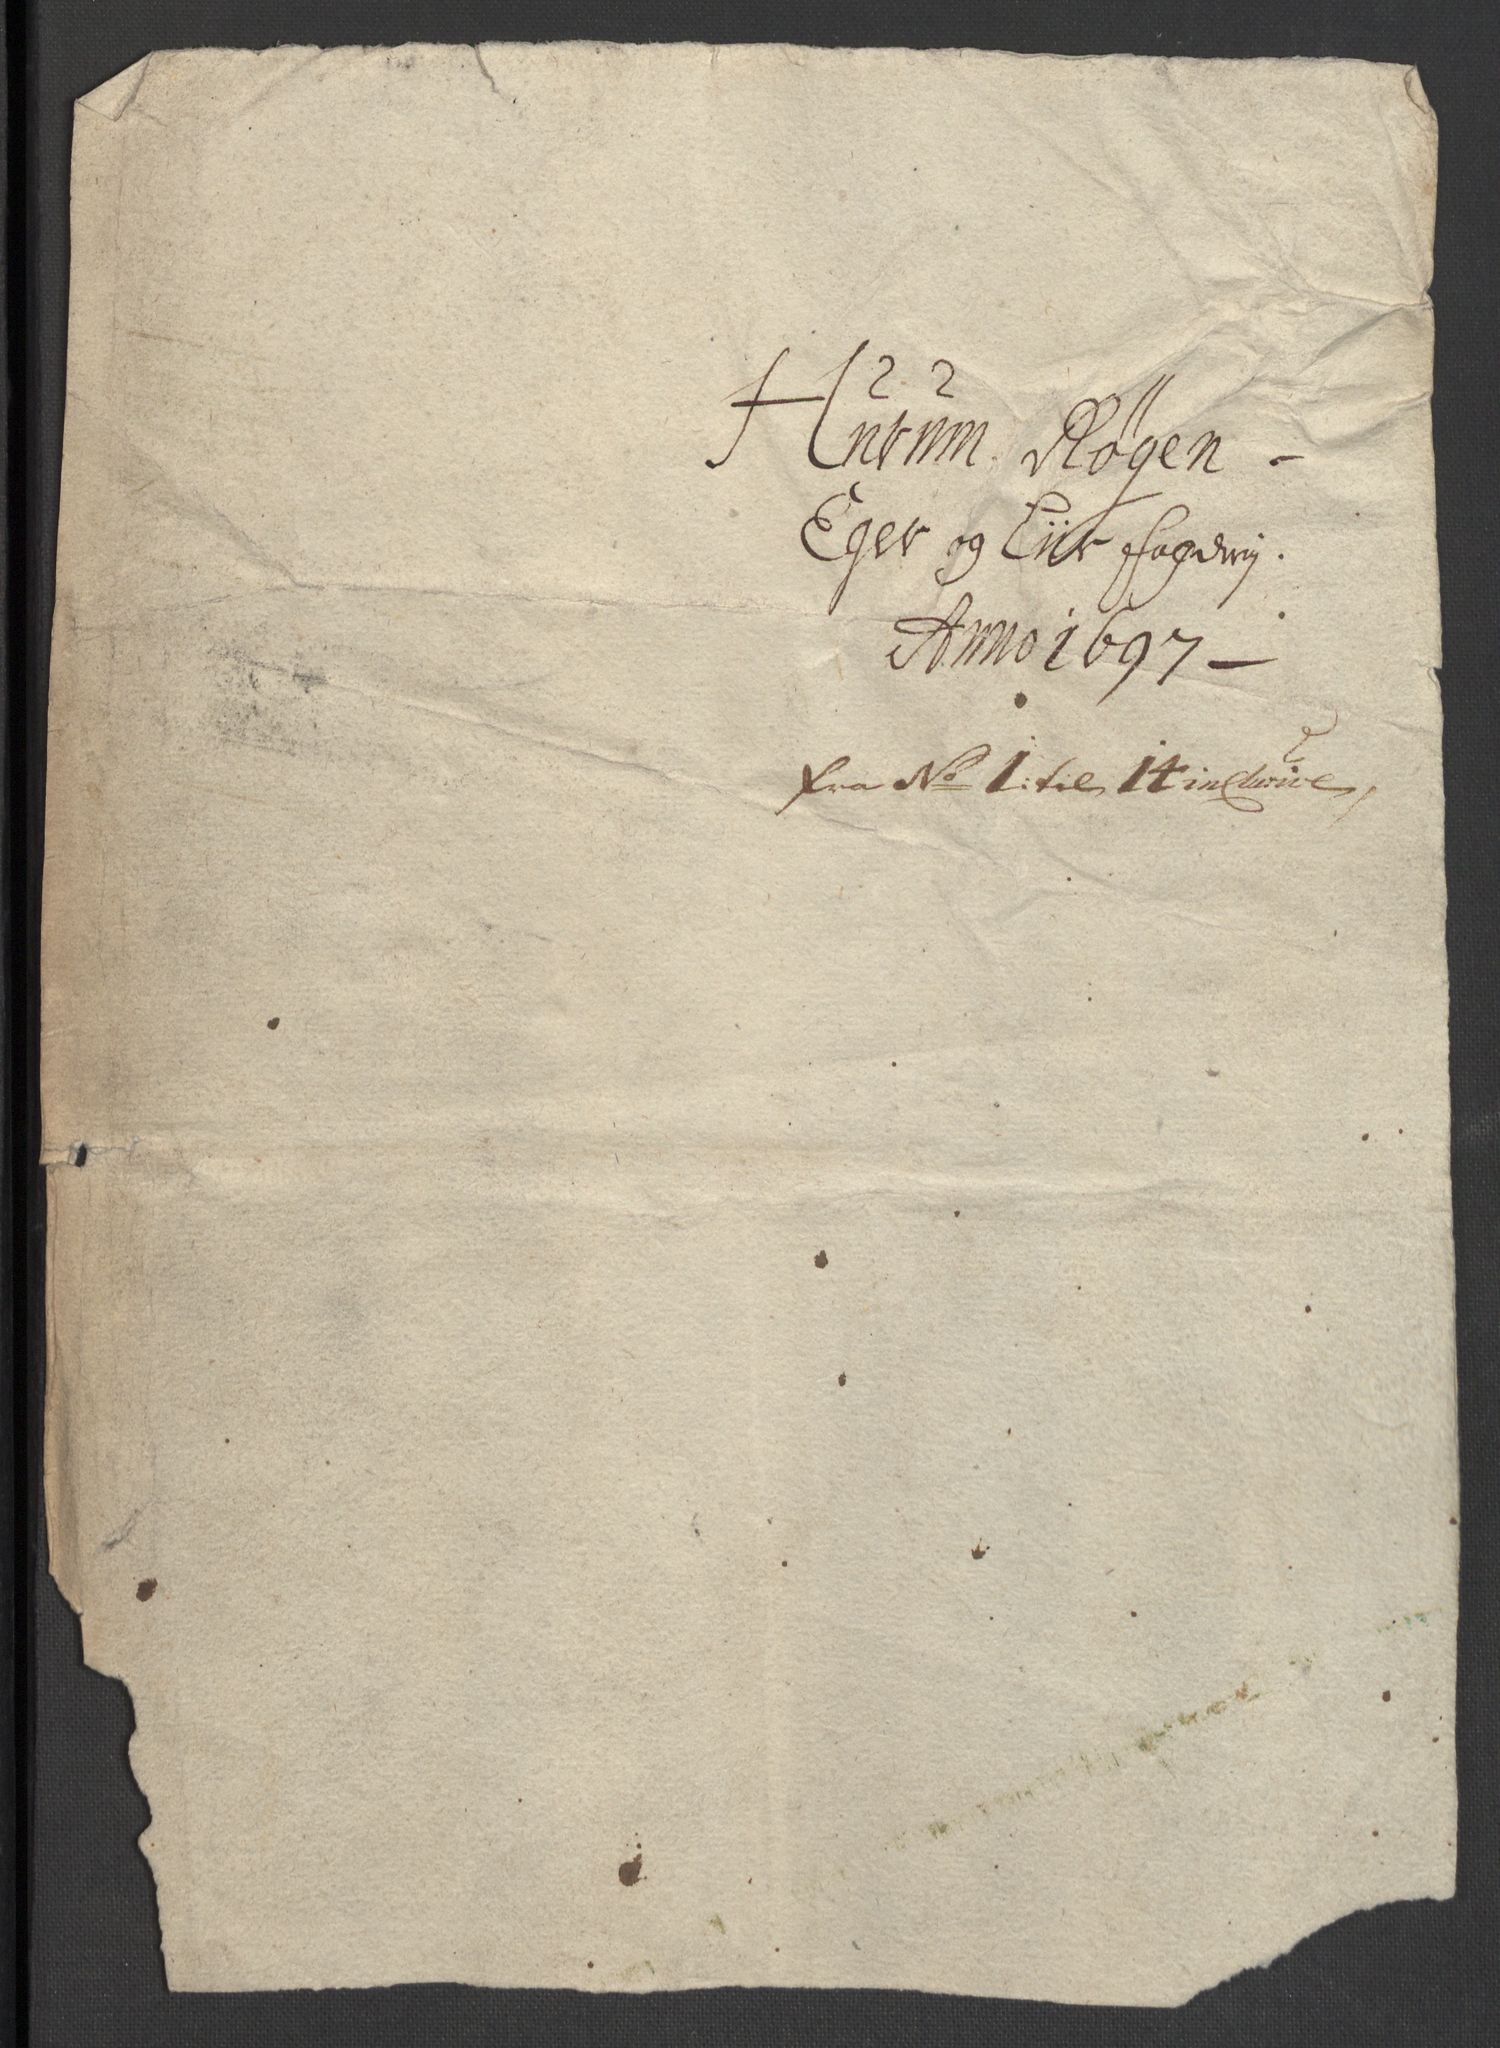 Hurum. Røgen -
Eger og Liir fogderij.
Anno 1697 -
fra No 1: til 14 inclusive,